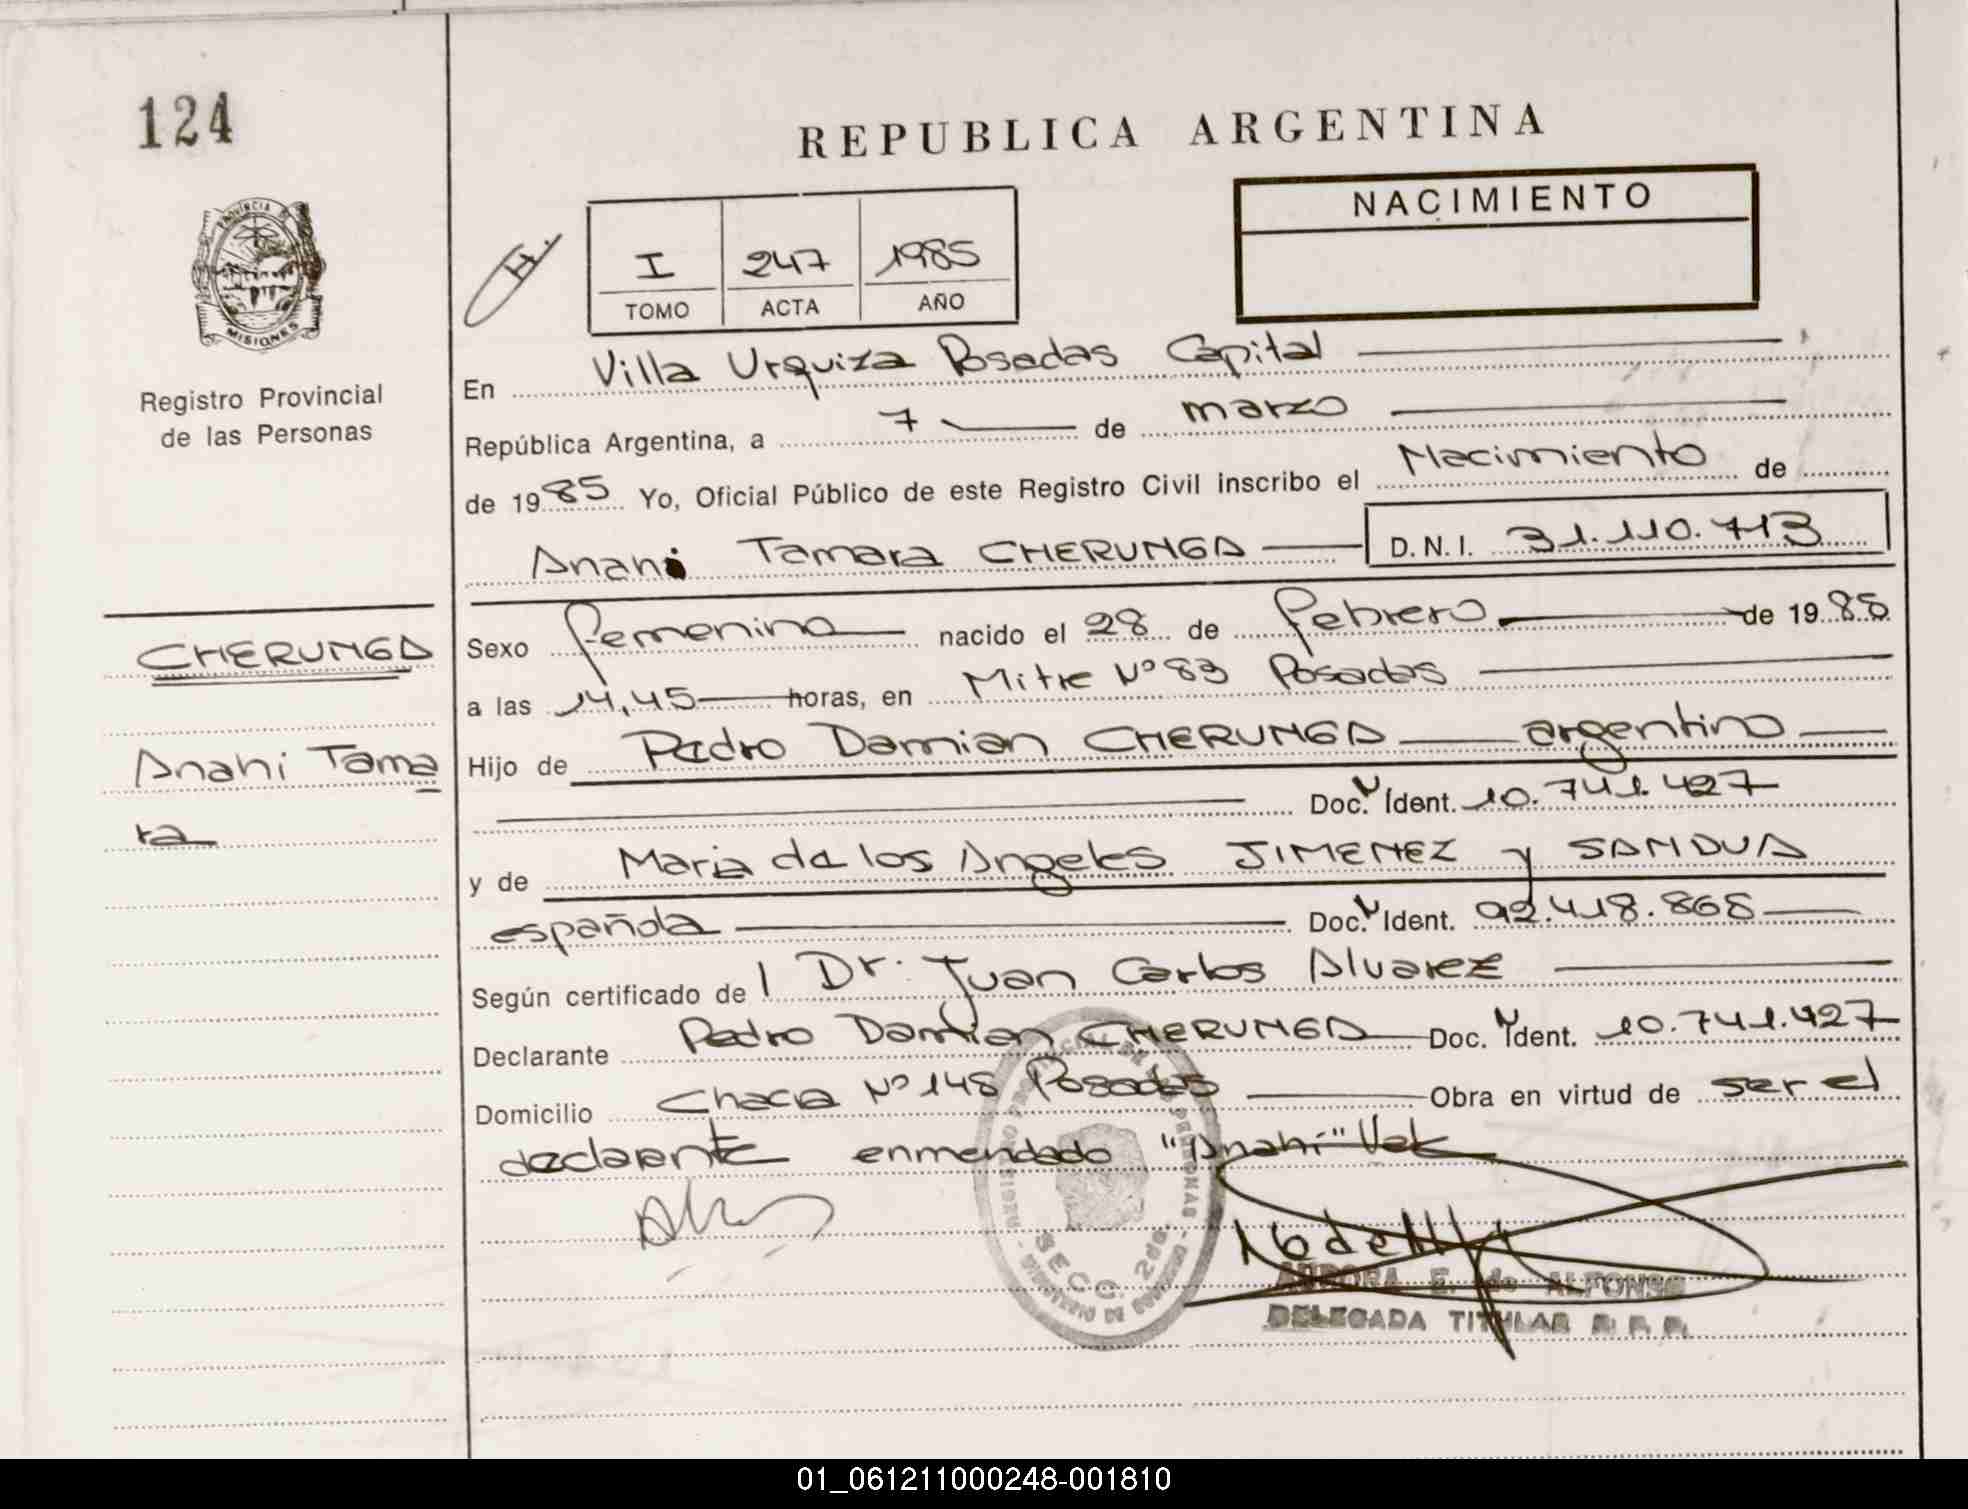 124
REPUBLICA ARGENTINA
PROVINCIA DE
MISIONES
Registro Provincial
de las Personas
NACIMIENTO
I 247 1985
TOMO ACTA AÑO
En Villa Urquiza Posadas Capital
República Argentina, a 7 de marzo
de 1985 Yo, Oficial Público de este Registro Civil inscribo el Nacimiento de
Anahi Tamara CHERUNGA D.N.I. 31.110.713
CHERUNGA
Anahi Tama
ra
Sexo femenino nacido el 28 de febrero de 1985
a las 14,45 horas, en Mitre Nº 83 Posadas
Hijo de Pedro Damian CHERUNGA argentino
Doc. Ident. 10.741.427
y de Maria de los Angeles JIMENEZ y SANDUA
española Doc. Ident. 92.418.868
Según certificado de l Dr. Juan Carlos Alvarez
Declarante Pedro Damian CHERUNGA Doc. Ident. 10.741.427
Domicilio Chacra Nº 148 Posadas Obra en virtud de ser el
declarante enmendado "Anahi" Vale
SECC. 2da.
AURORA E. de ALFONSO
DELEGADA TITULAR R. P. P.
01_061211000248-001810